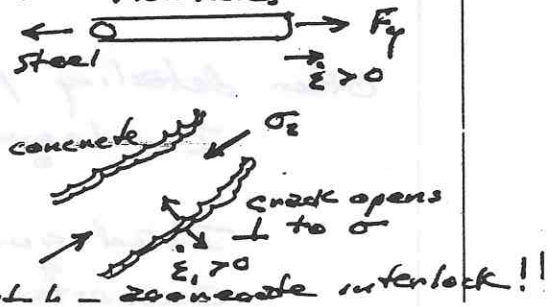 F_y
steel
ε̇ > 0
concrete
σ₂
crack opens
⊥ to σ
ε̇₁ > 0
interlock!!